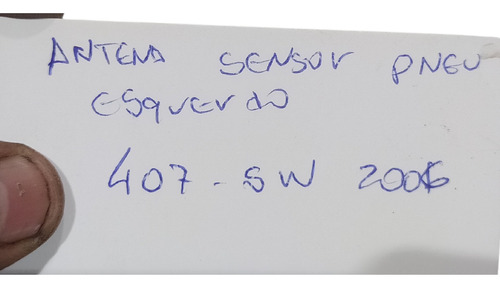 ANTENA SENSOR PNEU
ESQUERDO
407-SW 2006